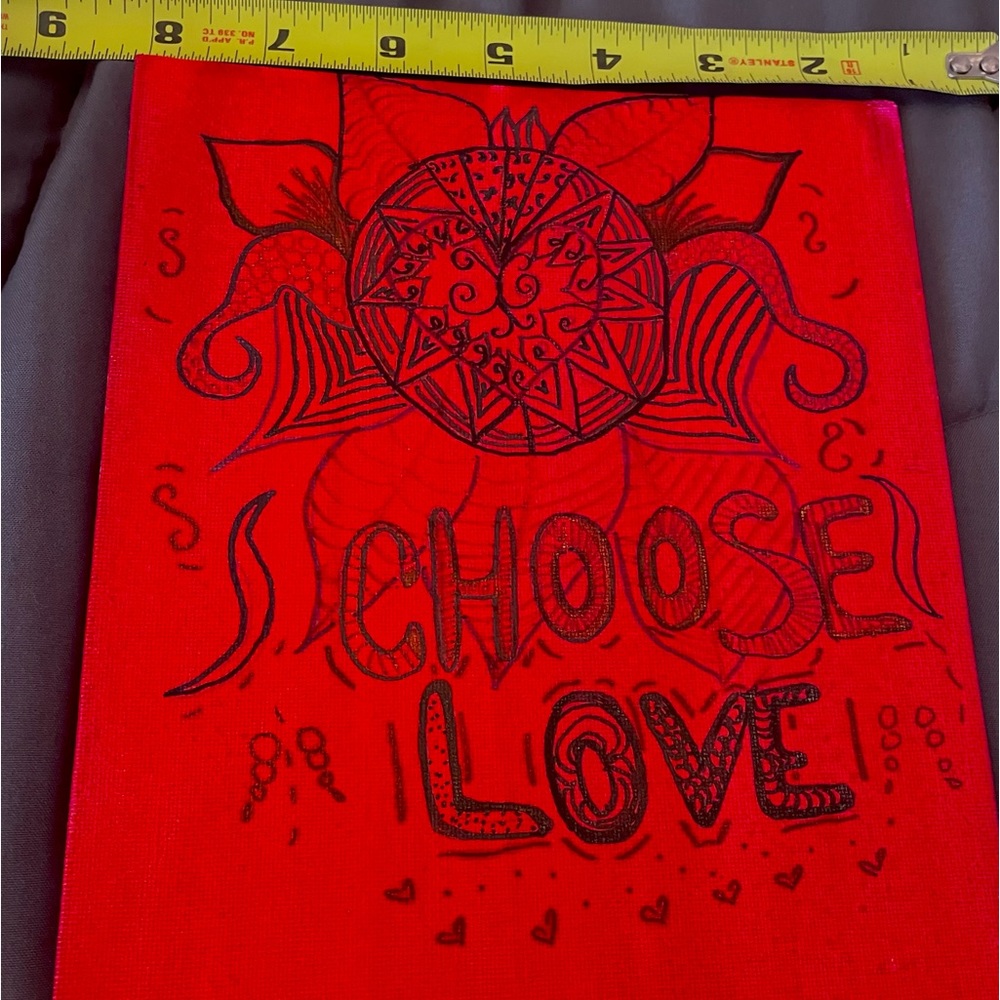 9 8 P.R. APP'D NO. 339 TC 7 6 5 4 3 STANLEY® 2 16 R 1
CHOOSE
LOVE